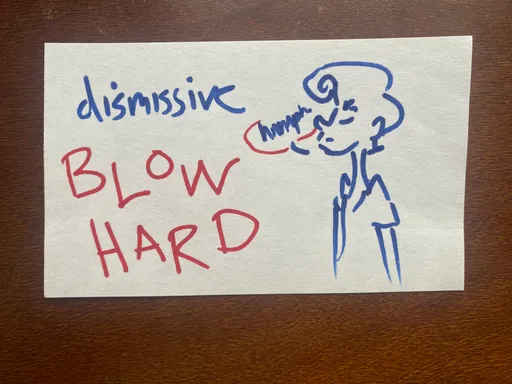 dismissive
BLOW
HARD
humph